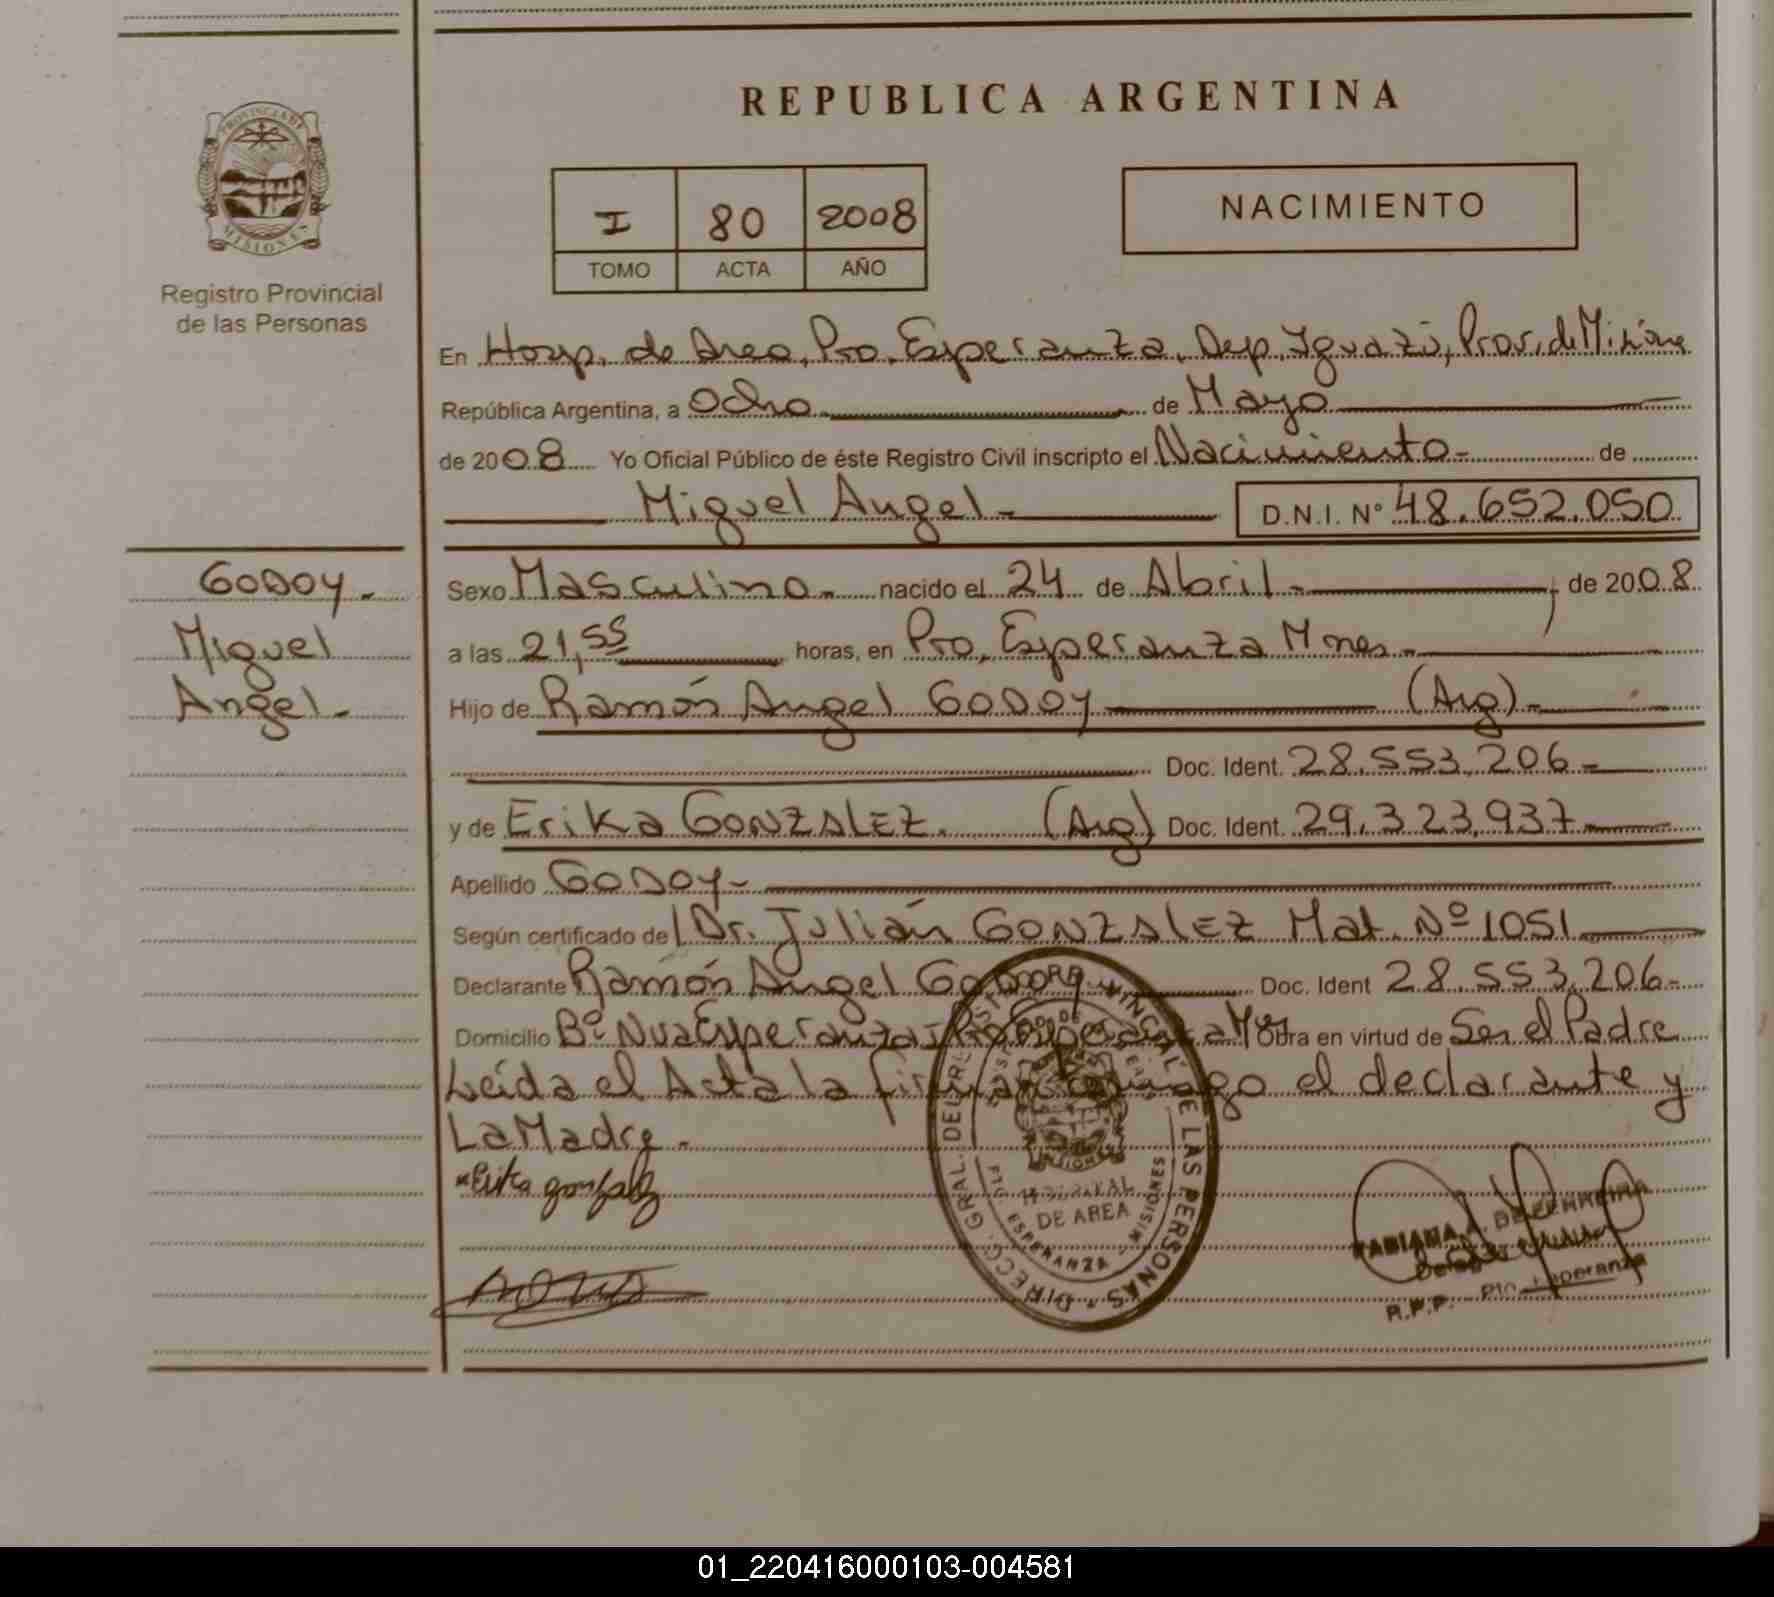 REPUBLICA ARGENTINA
PROVINCIA DE
MISIONES
Registro Provincial
de las Personas
I 80 2008
TOMO ACTA AÑO
NACIMIENTO
En Hosp. de Area, Pto. Esperanza, Dep. Iguazú, Prov. de Misiones
República Argentina, a Ocho de Mayo
de 2008 Yo Oficial Público de éste Registro Civil inscripto el Nacimiento - de
Miguel Angel - D.N.I. Nº 48.652.050
GODOY -
Miguel
Angel -
Sexo Masculino - nacido el 24 de Abril - de 2008
a las 21,55 horas, en Pto. Esperanza Mnes -
Hijo de Ramón Angel GODOY (Arg) -
Doc. Ident. 28.553.206 -
y de Erika GONZALEZ. (Arg) Doc. Ident. 29.323.937 -
Apellido GODOY -
Según certificado del Dr. Julián GONZALEZ Mat. Nº 1051
Declarante Ramón Angel GODOY Doc. Ident 28.553.206 -
Domicilio Bº Nva Esperanza Obra en virtud de Ser el Padre
Leída el Acta la firman conmigo el declarante y
La Madre -
Erika gonzalez
DIRECC. GRAL. DEL REGISTRO PROVINCIAL DE LAS PERSONAS
HOSPITAL
DE AREA
PTO. ESPERANZA - MISIONES
FABIANA A. DE FERREIRA
R.P.P. Pto. Esperanza
01_220416000103-004581